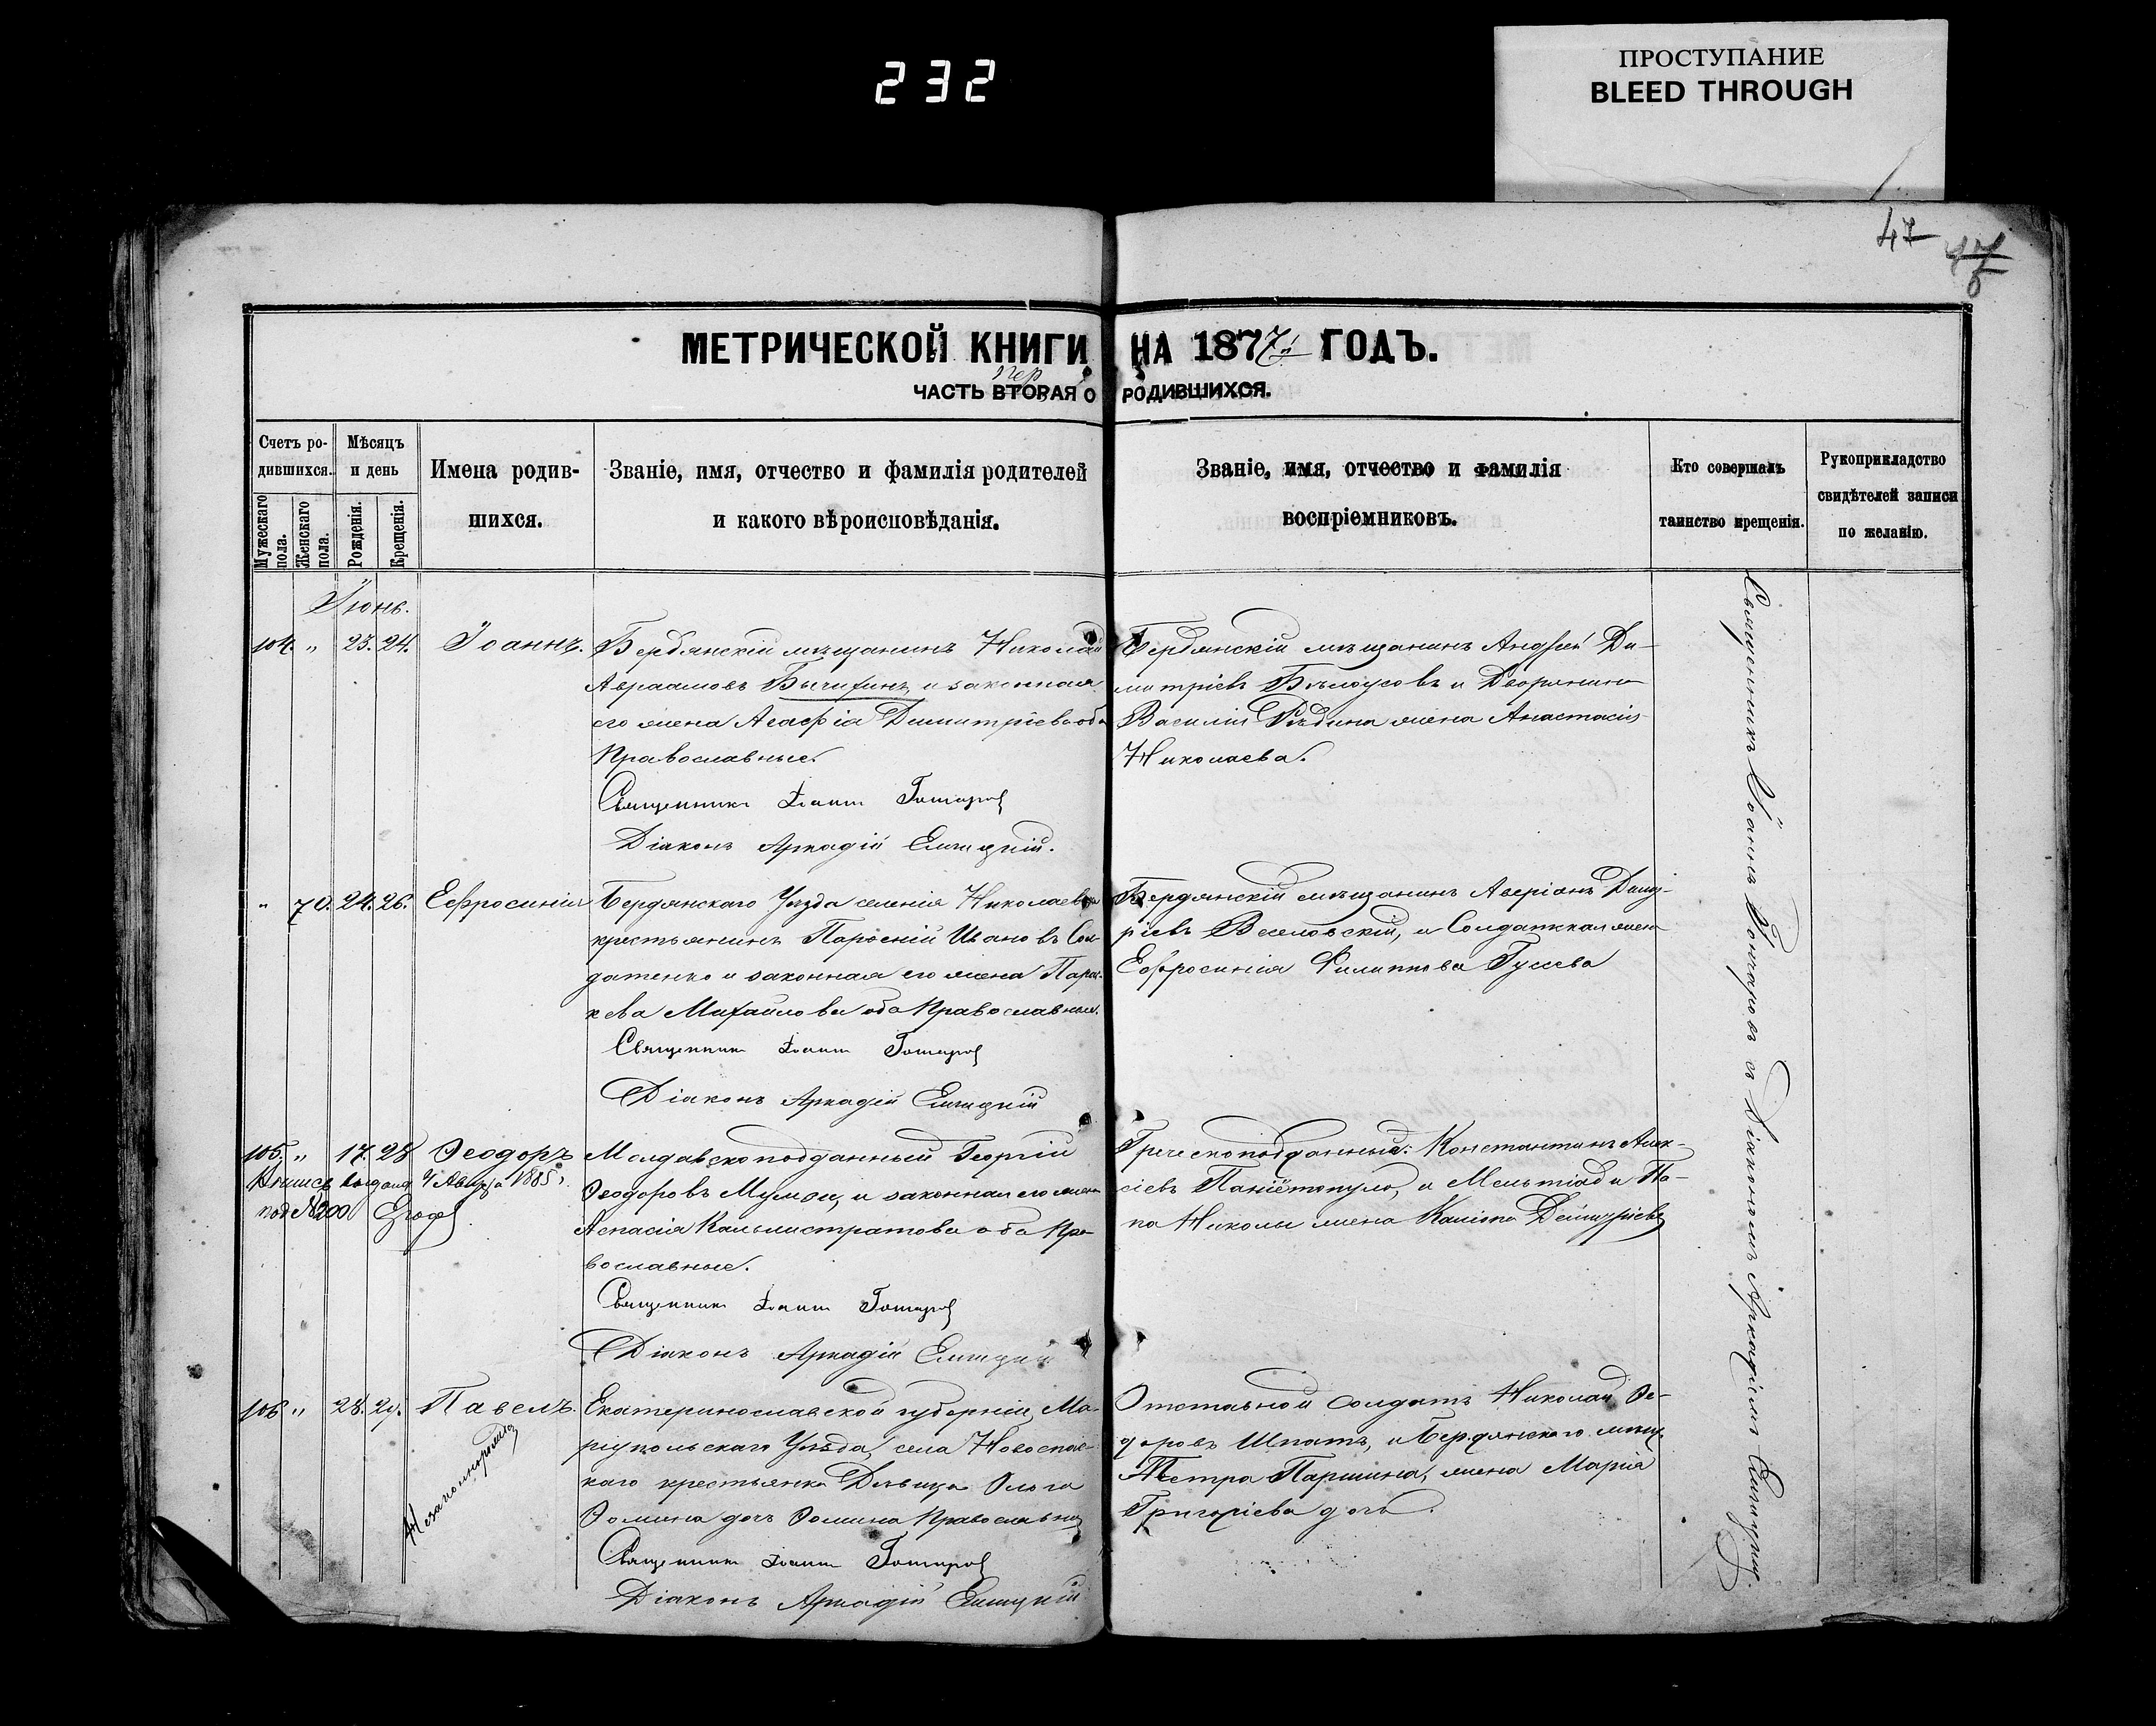 232
ПРОСТУПАНИЕ
BLEED THROUGH
47
МЕТРИЧЕСКОЙ КНИГИ НА 1877й ГОДЪ.
пер
ЧАСТЬ ВТОРАЯ О РОДИВШИХСЯ.
Счетъ ро-
дившихся.
Мужескаго пола.
Женскаго пола.
Мѣсяцъ
и день
Рожденія.
Крещенія.
Имена родив-
шихся.
Званіе, имя, отчество и фамилія родителей
и какого вѣроисповѣданія.
Званіе, имя, отчество и фамилія
воспріемниковъ.
Кто совершалъ
таинство крещенія.
Рукоприкладство
свидѣтелей записи
по желанію.
Іюнь.
104. " 23. 24. Іоаннъ.
Бердянскій мѣщанинъ Николай
Авраамовъ Бычихинъ, и законная
его жена Агафія Димитріева оба
Православные.
Священникъ Іоаннъ Гончаровъ
Діаконъ Аркадій
Бердянскій мѣщанинъ Андрей Ди-
митріевъ Бѣлоусовъ и Дворянина
Василія Рѣдина жена Анастасія
Николаева.
" 70. 24. 26. Евфросинія
Бердянскаго Уѣзда селенія Николаевки
крестьянинъ Парѳеній Ивановъ Сол-
датенко и законная его жена Парас-
кева Михайлова оба Православные.
Священникъ Іоаннъ Гончаровъ
Діаконъ Аркадій
Бердянскій мѣщанинъ Аверіанъ Димит-
ріевъ Веселовскій, и Солдатская жена
Евфросинія Филиппова Гусева
105. " 17. 28 Ѳеодоръ
Выпись выдана 4 Августа 1885 г.
под №200
Молдавскоподданный Георгій
Ѳеодоровъ и законная его жена
Аспасія Каллистратова оба Пра-
вославные.
Священникъ Іоаннъ Гончаровъ
Діаконъ Аркадій
Греческоподданный: Константинъ Алек-
сіевъ и Мельтіади Па-
па Николы жена Димитріева
106 " 28. 29. Павелъ.
Незаконнорожд.
Екатеринославской губерніи, Ма-
ріупольскаго Уѣзда, села Новоспас-
каго крестьянка Дѣвица Ольга
Ѳомина дочь Ѳомина Православная
Священникъ Іоаннъ Гончаровъ
Діаконъ Аркадій
Отставной солдатъ Николай Ѳе-
доровъ Шпатъ, и Бердянскаго мѣщ.
Петра Паршина, жена Марія
Григоріева дочь.
Священникъ Іоаннъ Гончаровъ съ Діакономъ Аркадіемъ